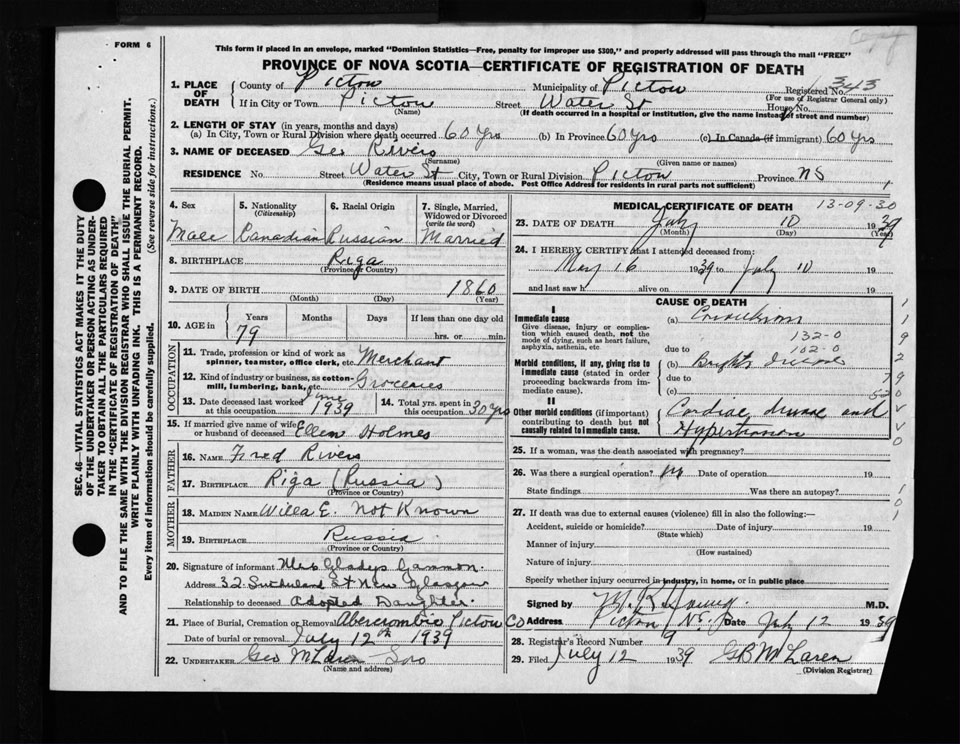 FORM 6
This form if placed in an envelope, marked "Dominion Statistics—Free, penalty for improper use $300," and properly addressed will pass through the mail "FREE"
Copy
PROVINCE OF NOVA SCOTIA—CERTIFICATE OF REGISTRATION OF DEATH
SEC. 46—VITAL STATISTICS ACT MAKES IT THE DUTY
OF THE UNDERTAKER OR PERSON ACTING AS UNDER-
TAKER TO OBTAIN ALL THE PARTICULARS REQUIRED
IN THE "CERTIFICATE OF REGISTRATION OF DEATH"
AND TO FILE THE SAME WITH THE DIVISION REGISTRAR WHO SHALL ISSUE THE BURIAL PERMIT.
WRITE PLAINLY WITH UNFADING INK. THIS IS A PERMANENT RECORD.
Every item of information should be carefully supplied. (See reverse side for instructions.)
1. PLACE OF DEATH County of Pictou Municipality of Pictou Registered No. 343
(For use of Registrar General only)
If in City or Town Pictou Street Water St House No.
(Name) (If death occurred in a hospital or institution, give the name instead of street and number)
2. LENGTH OF STAY (in years, months and days)
(a) In City, Town or Rural Division where death occurred 60 Yrs (b) In Province 60 Yrs (c) In Canada (if immigrant) 60 Yrs
3. NAME OF DECEASED Geo Rivers
(Surname) (Given name or names)
RESIDENCE No. Street Water St City, Town or Rural Division Pictou Province NS
(Residence means usual place of abode. Post Office Address for residents in rural parts not sufficient)
4. Sex 5. Nationality (Citizenship) 6. Racial Origin 7. Single, Married, Widowed or Divorced (write the word)
Male Canadian Russian Married
8. BIRTHPLACE Riga
(Province or Country)
9. DATE OF BIRTH 1860
(Month) (Day) (Year)
10. AGE in Years Months Days If less than one day old
79 hrs. or min.
OCCUPATION
11. Trade, profession or kind of work as spinner, teamster, office clerk, etc. Merchant
12. Kind of industry or business, as cotton-mill, lumbering, bank, etc. Groceries
13. Date deceased last worked at this occupation June 1939 14. Total yrs. spent in this occupation 30 yrs
15. If married give name of wife or husband of deceased Ellen Holmes
FATHER
16. NAME Fred Rivers
17. BIRTHPLACE Riga (Russia)
(Province or Country)
MOTHER
18. MAIDEN NAME Willa E. Not Known
19. BIRTHPLACE Russia
(Province or Country)
20. Signature of informant Mrs Gladys Gammon
Address 32 Sutherland St New Glasgow
Relationship to deceased Adopted Daughter
21. Place of Burial, Cremation or Removal Abercrombie Pictou Co
Date of burial or removal July 12th 1939
22. UNDERTAKER Geo McLaren Sons
(Name and address)
MEDICAL CERTIFICATE OF DEATH 13-09-30
23. DATE OF DEATH July 10 1939
(Month) (Day) (Year)
24. I HEREBY CERTIFY that I attended deceased from:
May 16 1939 to July 10 19
and last saw h alive on 19
CAUSE OF DEATH
I
Immediate cause
Give disease, injury or complication which caused death, not the mode of dying, such as heart failure, asphyxia, asthenia, etc.
(a) Convulsions
132-0
162-0
due to
Morbid conditions, if any, giving rise to immediate cause (stated in order proceeding backwards from immediate cause).
(b) Brights disease
due to
(c)
II
Other morbid conditions (if important) contributing to death but not causally related to immediate cause.
Cardiac disease and
Hypertension
25. If a woman, was the death associated with pregnancy?
26. Was there a surgical operation? no Date of operation 19
State findings Was there an autopsy?
27. If death was due to external causes (violence) fill in also the following:—
Accident, suicide or homicide? Date of injury 19
(State which)
Manner of injury
(How sustained)
Nature of injury
Specify whether injury occurred in industry, in home, or in public place
Signed by M.D.
Address Pictou NS Date July 12 1939
28. Registrar's Record Number 9
29. Filed July 12 1939 GB McLaren
(Division Registrar)